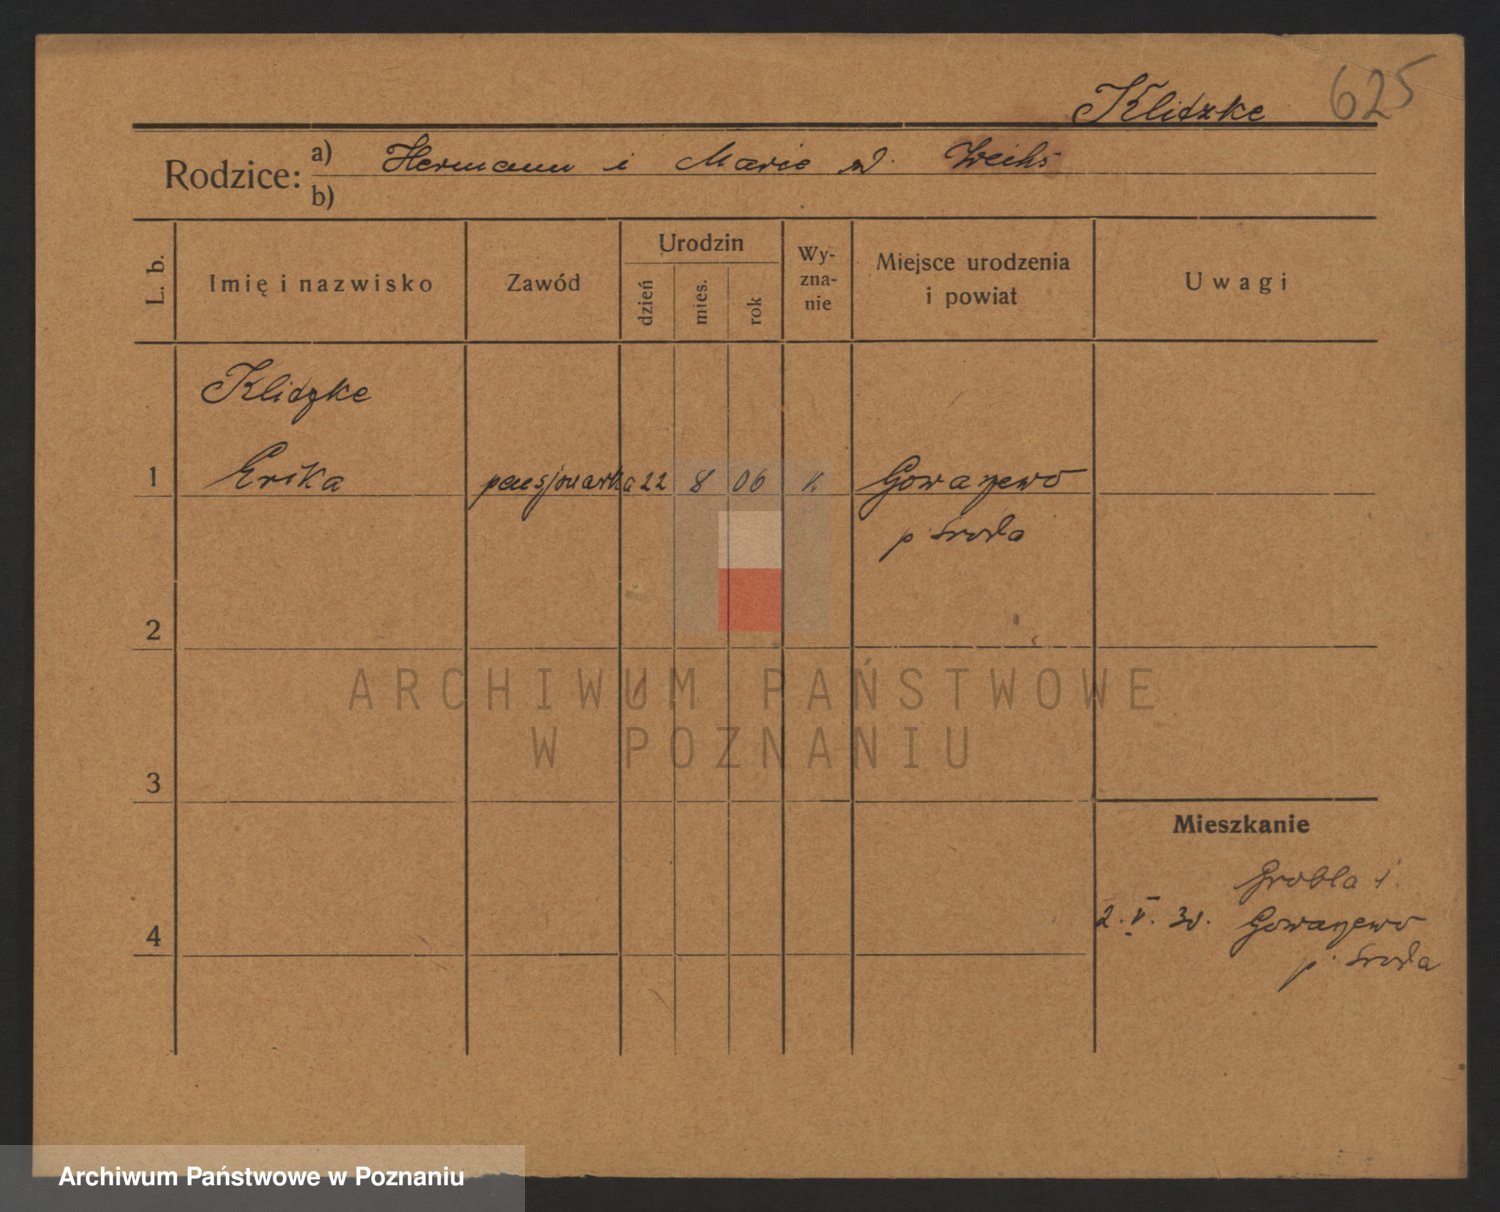 625
Klidzke
Rodzice: a) Hermann i Marie
b)
L. b. Imię i nazwisko Zawód Urodzin dzień mies. rok Wy-zna-nie Miejsce urodzenia i powiat Uwagi
Klidzke
1 Erika pensjonarka 22 8 06 Gowarzewo
p Środa
2
ARCHIWUM PAŃSTWOWE
W POZNANIU
3
Mieszkanie
Grobla 1.
4 2. V. 30. Gowarzewo
p. Środa
Archiwum Państwowe w Poznaniu